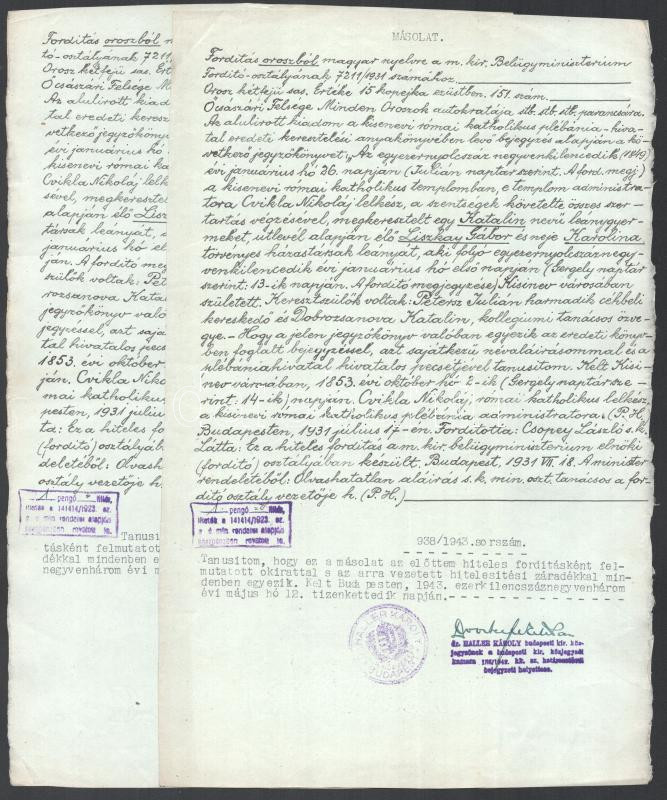 MÁSOLAT.
Forditás oroszból magyar nyelvre a m. kir. Belügyministerium
Forditó-osztályának 7211/1931 számához.
Orosz kétfejü sas. Értéke 15 kopejka ezüstben. 151. szám.
Őcsászári Felsége Minden Oroszok autokratája stb. stb. stb. parancsára.
Az alulirott kiadom a kisenevi római katholikus plébánia-hiva-
tal eredeti keresztelési anyakönyvében levő bejegyzés alapján a kö-
vetkező jegyzőkönyvet: Az egyezernyolcszáz negyvenkilencedik (1849)
évi januárius hó 36. napján (Julián naptár szerint. A ford. megj.)
a kisenevi római katholikus templomban, e templom administra-
tora Cvikla Nikoláj lelkész, a szentségek követelte összes szer-
tartás végzésével, megkeresztelt egy Katalin nevü leánygyer-
meket, útlevél alapján élő Liszkay Gábor és neje Karolina
törvényes házastársak leányát, aki folyó egyezernyolcszáznegy-
venkilencedik évi januárius hó első napján (Gergely naptár
szerint: 13-ik napján. A forditó megjegyzése) Kisinev városában
született. Keresztszülők voltak: Pétersz Julián harmadik céhbeli
kereskedő és Dobrozsanova Katalin, kollegiumi tanácsos özve-
gye. - Hogy a jelen jegyzőkönyv valóban egyezik az eredeti könyv-
ben foglalt bejegyzéssel, azt sajátkezü névaláirásommal és a
plébániahivatal hivatalos pecsétjével tanusitom. Kelt Kisi-
nev városában, 1853. évi október hó 2-ik (Gergely naptár sze-
rint: 14-ik) napján. Cvikla Nikoláj, római katholikus lelkész,
a kisinevi római katholikus plébánia administratora. (P. H.)
Budapesten, 1931 július 17-én. Forditotta: Csopey László s. k.
Látta: Ez a hiteles forditás a m. kir. belügyministerium elnöki
(forditó) osztályában készült. Budapest, 1931 VII. 18. A minister
rendeletéből: Olvashatatlan aláirás s. k. min. oszt. tanácsos a for-
ditó osztály vezetője h. (P. H.)
pengő fillér,
illeték a 141414/1923. sz.
938/1943. sorszám.
Tanusitom, hogy ez a másolat az előttem hiteles forditásként fel-
mutatott okirattal s az arra vezetett hitelesitési záradékkal min-
denben egyezik. Kelt Budapesten, 1943. ezerkilencszáznegyvenhárom
évi május hó 12. tizenkettedik napján.
HALLER KÁROLY
BUDAPEST
dr. HALLER KÁROLY budapesti kir. köz-
jegyzőnek a budapesti kir. közjegyzői
bejegyzett helyettese.
Forditás oroszból m
tó-osztályának 7211/
Orosz kétfejü sas. Érté
Őcsászári Felsége M
Az alulirott kiad
tal eredeti keresz
vetkező jegyzőkönyv
évi januárius hó
kisenevi római k
Cvikla Nikoláj lelk
sével, megkeresztel
alapján élő Lisz
társak leányát, a
januárius hó el
ján. A forditó meg
szülők voltak: Pét
rozsanova Kata
jegyzőkönyv való
jegyzéssel, azt saja
tal hivatalos pecs
1853. évi október
ján. Cvikla Niko
mai katholikus
pesten, 1931 július
ta: Ez a hiteles for
(forditó) osztályába
deletéből: Olvashat
osztály vezetője h
pengő fillér,
illeték a 141414/1923. sz.
Tanusit
tásként felmutatot
dékkal mindenben e
negyvenhárom évi m